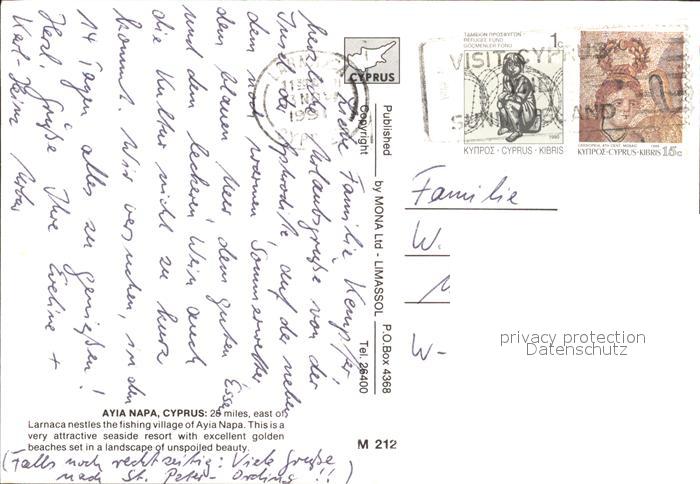 Liebe Familie Kempfer!
herzliche Urlaubsgrüße von der
Insel der Aphrodite auf der neben
dem noch warmen Sommerwetter
dem blauen Meer dem guten Essen
und dem leckeren Wein auch
die Kultur nicht zu kurz
kommt. Wir versuchen, in den
14 Tagen alles zu genießen!
Herzl. Grüße Ihre Eveline +
Karl-Heinz
(Falls noch rechtzeitig: Viele Grüße
nach St. Peter-Ording!!)
AYIA NAPA, CYPRUS: 25 miles, east of
Larnaca nestles the fishing village of Ayia Napa. This is a
very attractive seaside resort with excellent golden
beaches set in a landscape of unspoiled beauty.
CYPRUS
Copyright
Published by MONA Ltd - LIMASSOL P.O.Box 4368
Tel. 26400
M 212
LARNACA
ΤΑΜΕΙΟΝ ΠΡΟΣΦΥΓΩΝ
REFUGEE FUND
GÖÇMENLER FONU
1c
ΚΥΠΡΟΣ · CYPRUS · KIBRIS
1990
VISIT CYPRUS
CASSIOPEIA, 4TH CENT. MOSAIC 1989
ΚΥΠΡΟΣ·CYPRUS·KIBRIS 15c
Familie
W.
M
W-
privacy protection
Datenschutz